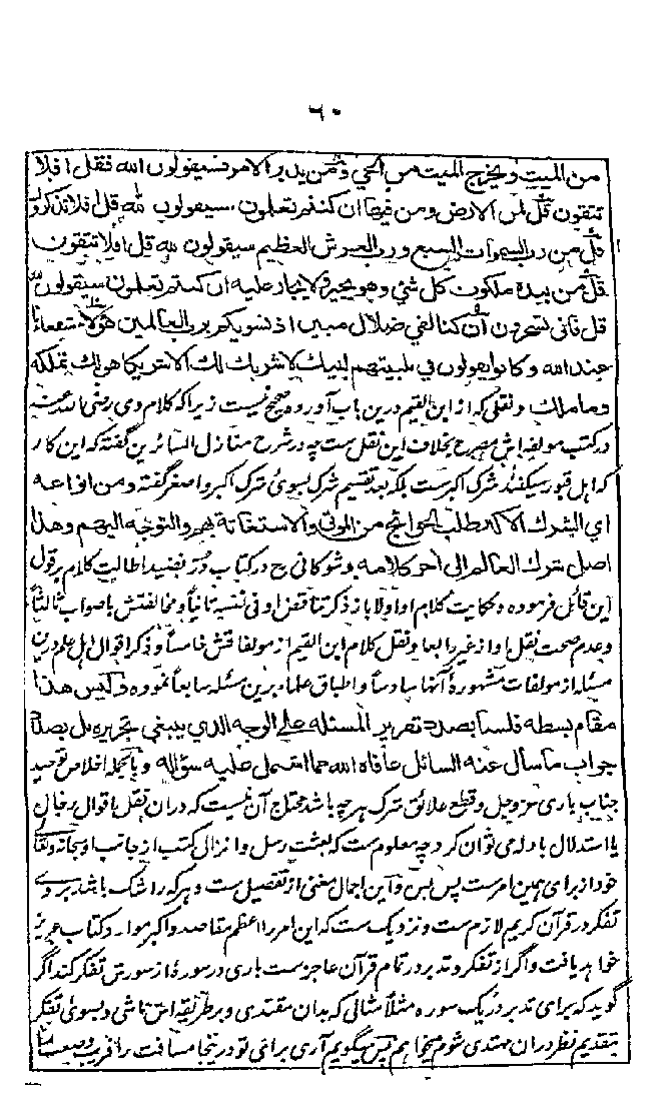 ٦٠
من الميت ويخرج الميت من الحي ومن يدبر الامر فسيقولون الله فقل افلا
تتقون قل لمن الارض ومن فيها ان كنتم تعلمون سيقولون لله قل افلا تذكرون
قل من رب السموات السبع ورب العرش العظيم سيقولون لله قل افلا تتقون
قل من بيده ملكوت كل شئ وهو يجير ولا يجار عليه ان كنتم تعلمون سيقولون لله
قل فانى تسحرون ان كنا لفي ضلال مبين اذ نسويكم برب العالمين هؤلاء شفعاءنا
عند الله وكانوا يقولون في تلبيتهم لبيك لا شريك لك الا شريكا هو لك تملكه
وما ملك ونقلى كه از ابن القيم درين باب آورده صحيح نيست زيراكه كلام وى رضى الله عنه
در كتب مولفه اش مصرح بخلاف اين نقل ست چه در شرح منازل السائرين گفته كه اين كار
كه اهل قبور ميكنند شرك اكبر ست بلكه بعد تقسيم شرك بسوى شرك اكبر و اصغر گفته ومن انواعه
اي الشرك الاكبر طلب الحوائج من الموتى والاستغاثة بهم والتوجه اليهم وهذا
اصل شرك العالم الى اخر كلامه و شوكانى رح در كتاب در نضيد اطالت كلام بر قول
اين قائل فرموده و حكايت كلام او اولا باز ذكر تناقض او فى نفسه ثانياً و مخالفتش با صواب ثالثاً
و عدم صحت نقل او از غير رابعا و نقل كلام ابن القيم از مولفاتش خامساً و ذكر اقوال اهل علم درين
مسئله از مولفات مشهورۀ آنها سادساً و اطباق علماء برين مسئله سابعاً نموده وليس هذا
مقام بسطه فلسنا بصدد تقرير المسئلة على الوجه الذي ينبغي تحريره بل بصدد
جواب ما سأل عنه السائل عافاه الله مما اشتمل عليه سؤاله و بالجمله اخلاص توحيد
جناب بارى عز وجل و قطع علائق شرك هر چه باشد محتاج آن نيست كه دران نقل اقوال رجال
يا استدلال بادله مى توان كرد چه معلوم ست كه بعثت رسل و انزال كتب از جانب او سبحانه وتعالى
خود از براى همين امر ست پس بس و اين اجمال مغنى از تفصيل ست و هركه را شك باشد بر وى
تفكر در قرآن كريم لازم ست و نزديك ست كه اين امر را اعظم مقاصد و اكبر موارد كتاب عزيز
خواهد يافت و اگر از تفكر و تدبر در تمام قرآن عاجز ست بارى در سورۀ از سورش تفكر كند اگر
گويد كه براى تدبر در يك سوره مثلاً مثالى كه بدان مقتدى و بر طريقه اش ماشى و بسوى تفكر
بتقديم نظر دران مهتدى شوم ميخواهم پس ميگويم آرى براى تو درينجا مسافت را قريب و صعب را